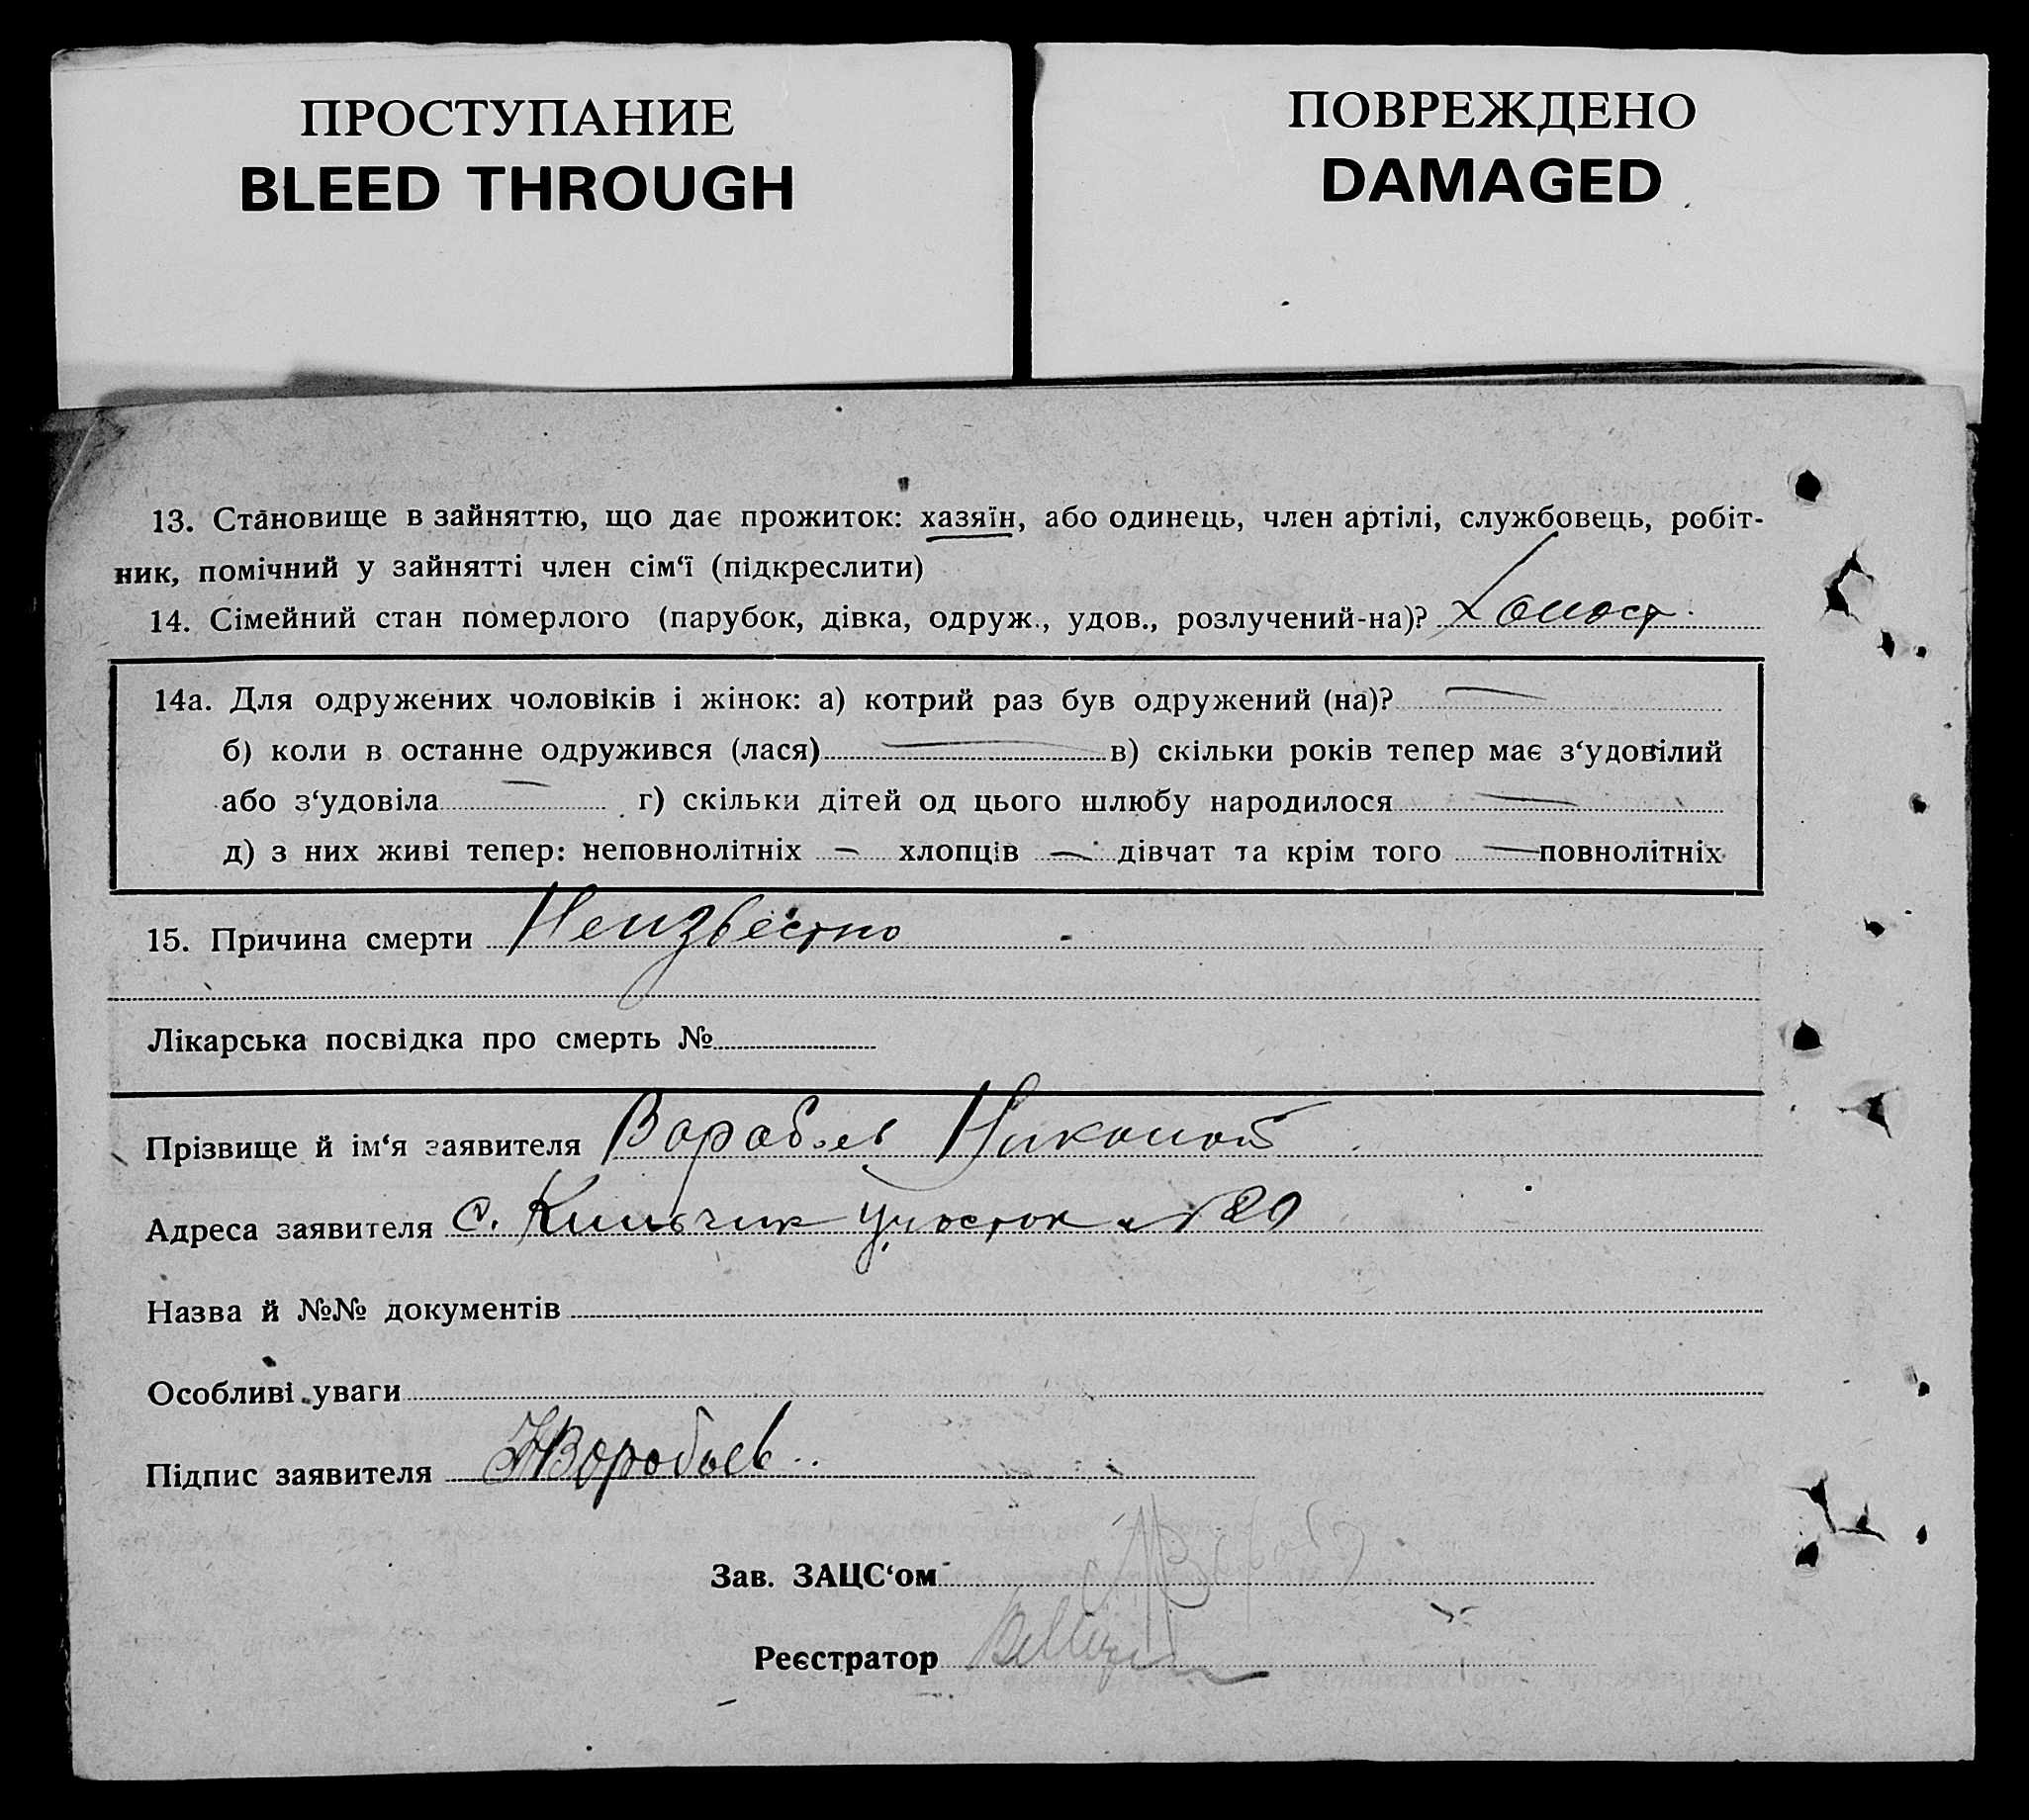 ПРОСТУПАНИЕ
BLEED THROUGH
ПОВРЕЖДЕНО
DAMAGED
13. Становище в зайняттю, що дає прожиток: хазяїн, або одинець, член артілі, службовець, робіт-
ник, помічний у зайнятті член сім‘ї (підкреслити)
14. Сімейний стан померлого (парубок, дівка, одруж., удов., розлучений-на)? Холост
14а. Для одружених чоловіків і жінок: а) котрий раз був одружений (на)? —
б) коли в останне одружився (лася) — в) скільки років тепер має з‘удовілий
або з‘удовіла — г) скільки дітей од цього шлюбу народилося —
д) з них живі тепер: неповнолітніх — хлопців — дівчат та крім того — повнолітніх
15. Причина смерти Неизвестно
Лікарська посвідка про смерть №
Прізвище й ім‘я заявителя Воробьев
Адреса заявителя с. Кильчик участок №20
Назва й №№ документів
Особливі уваги
Підпис заявителя НВоробьев
Зав. ЗАЦС‘ом
Реєстратор